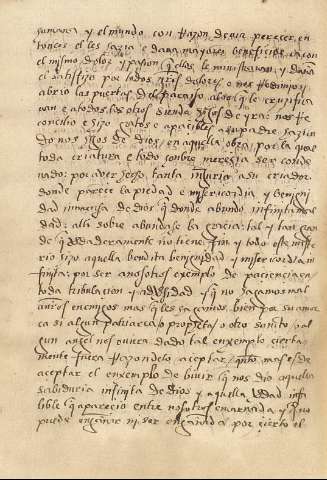 sumana y el mundo con Razon devia perecer en
tonces el les hazia e dava mayores beneficios. ca con
el mismo dolor y pasion q̃ ellos le ministravan, y davan
el satisfizo por todos nr̃os dolores e nos Redimio y
abrio las puertas del paraiso a los q̃ le crucifica
van e a todos los otros siendo hijos de yra: nos Re
concilio e hizo gratos e apacibles a su padre hazien
do nos hijos de dios en aquella obra por la qual
toda criatura e todo honbre merecia ser conde
nado: por aver hecho tanta injuria a su criador.
donde parece la piedad e misericordia y benigni
dad inmensa de dios q̃ donde abundo infinita mal
dad: alli sobre abundase la gracia: tal y tan gran
de q̃ verdaderamente no tiene fin y todo este miste
rio hizo aquella bendita benignidad y misericordia in
finita: por ser a nosotros exemplo de paciencia en
toda tribulacion y adversidad y q̃ no hagamos mal
a nr̃os enemigos mas q̃ les hagamos bien por su amor
ca si algun patriarca o propheta / o otro santo o al
gun angel nos ouiera dado tal enxemplo cierta
mente fuera Razon de lo aceptar / quanto mas es de
aceptar el enxemplo de bivir q̃ nos dio aquella
sabiduria infinita de Dios y aquella bondad infa
lible q̃ aparecio entre nosotros encarnada y q̃ no
puede engañar ni ser engañada por cierto el